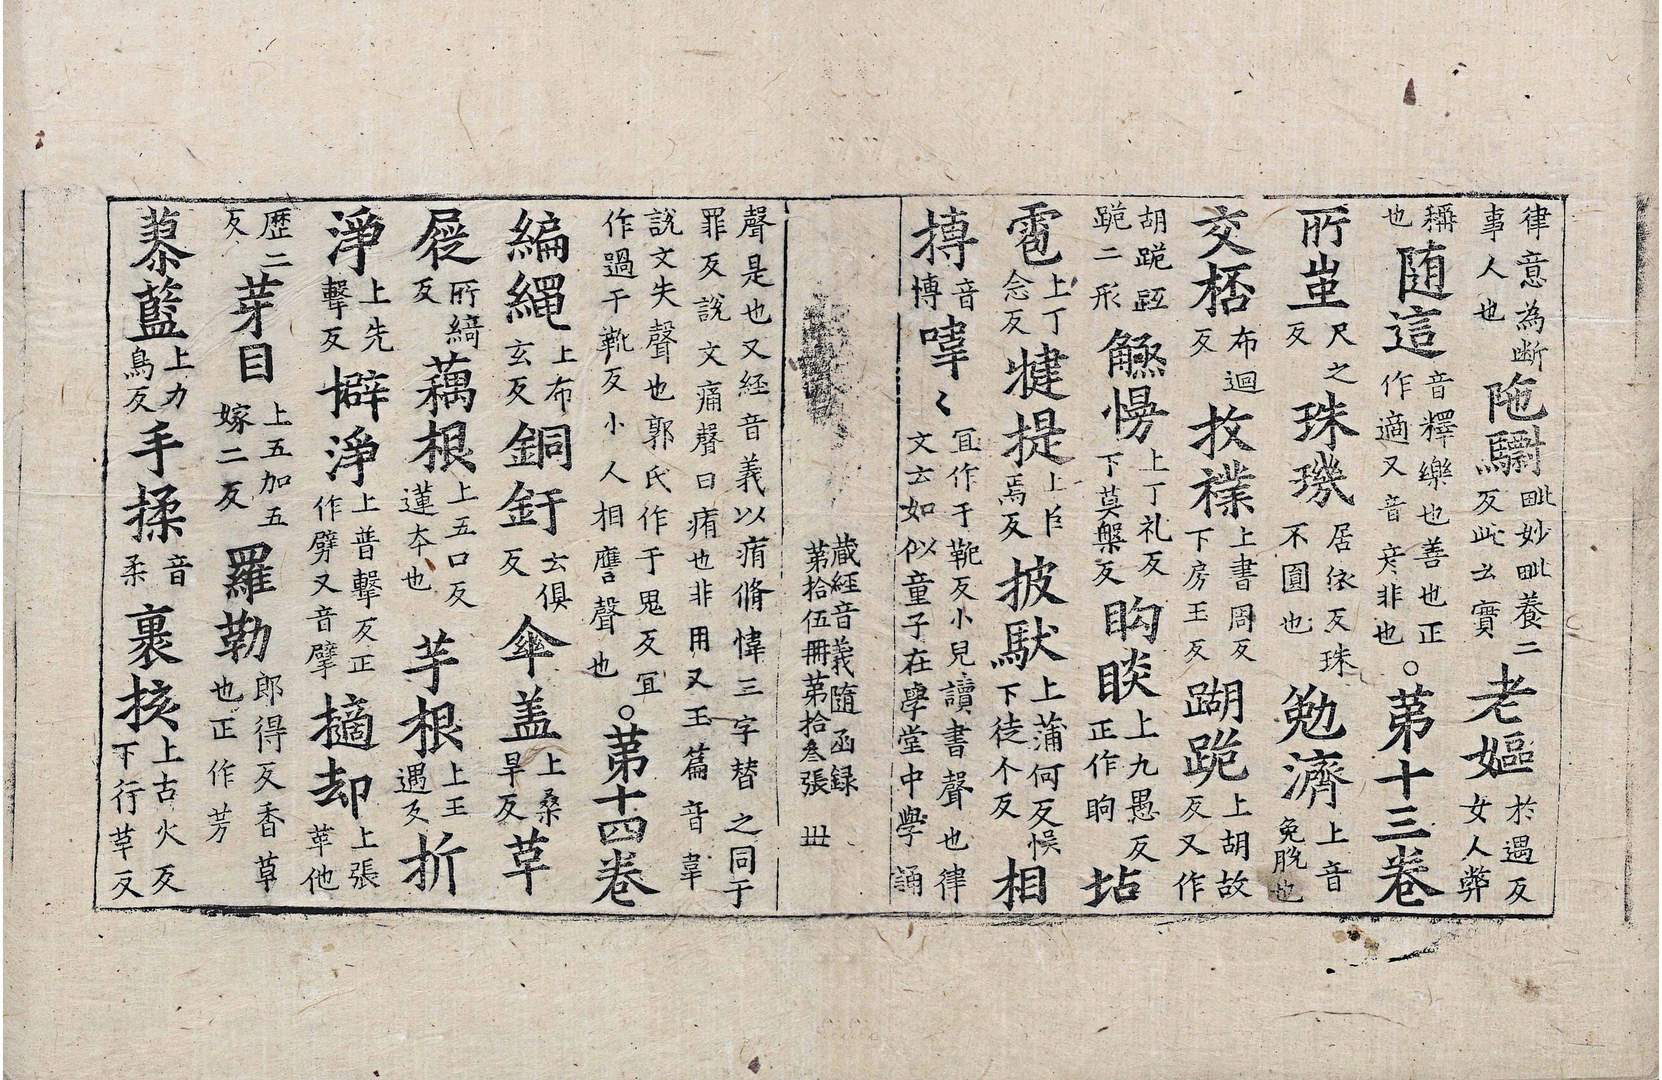 律意為断事人也陁騸毗妙毗養二反此云實老嫗於遇反女人弊
稱也随這音釋樂也善也正作適又音彦非也。苐十三卷
所𡴎尺之反珠璣居依反珠不圓也勉濟上音免脫也
交栝布迴反扙襆上書周反下房玉反蹦跪上胡故反又作
胡跪䟽跪二形䚩慢上丁礼反下莫槃反眗睒上九愚反正作眴坫
雹上丁念反揵提上巨焉反披馱上蒲何反悮下徒个反相
摶音博嘩〻冝作于靴反小兒讀書聲也律文云如似童子在學堂中學誦
藏經音義随函録苐拾伍冊苐拾叁張 丗
聲是也又経音義以痏脩愇三字替之同于罪反說文痛聲曰痏也非用又玉篇音韋
說文失聲也郭氏作于鬼反冝作過于靴反小人相譍聲也。苐十四卷
編繩上布玄反銅釪云俱反傘盖上桑旱反草
屐所綺反藕根上五口反蓮夲也芋根上王遇反折
淨上先擊反擗淨上普擊反正作劈又音擘擿却上張革他
歴二反芽目上五加五嫁二反羅勒郎得反香草也正作芳
蓼藍上力鳥反手揉音柔裹核上古火反下行革反